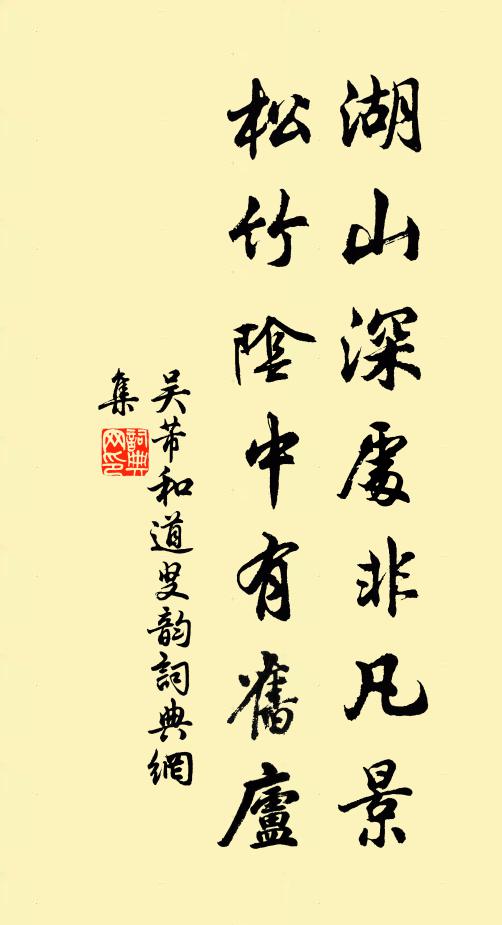 湖山深處非凡景
松竹陰中有舊廬
吴芾和道叟韵詞典網
集
詞典網印